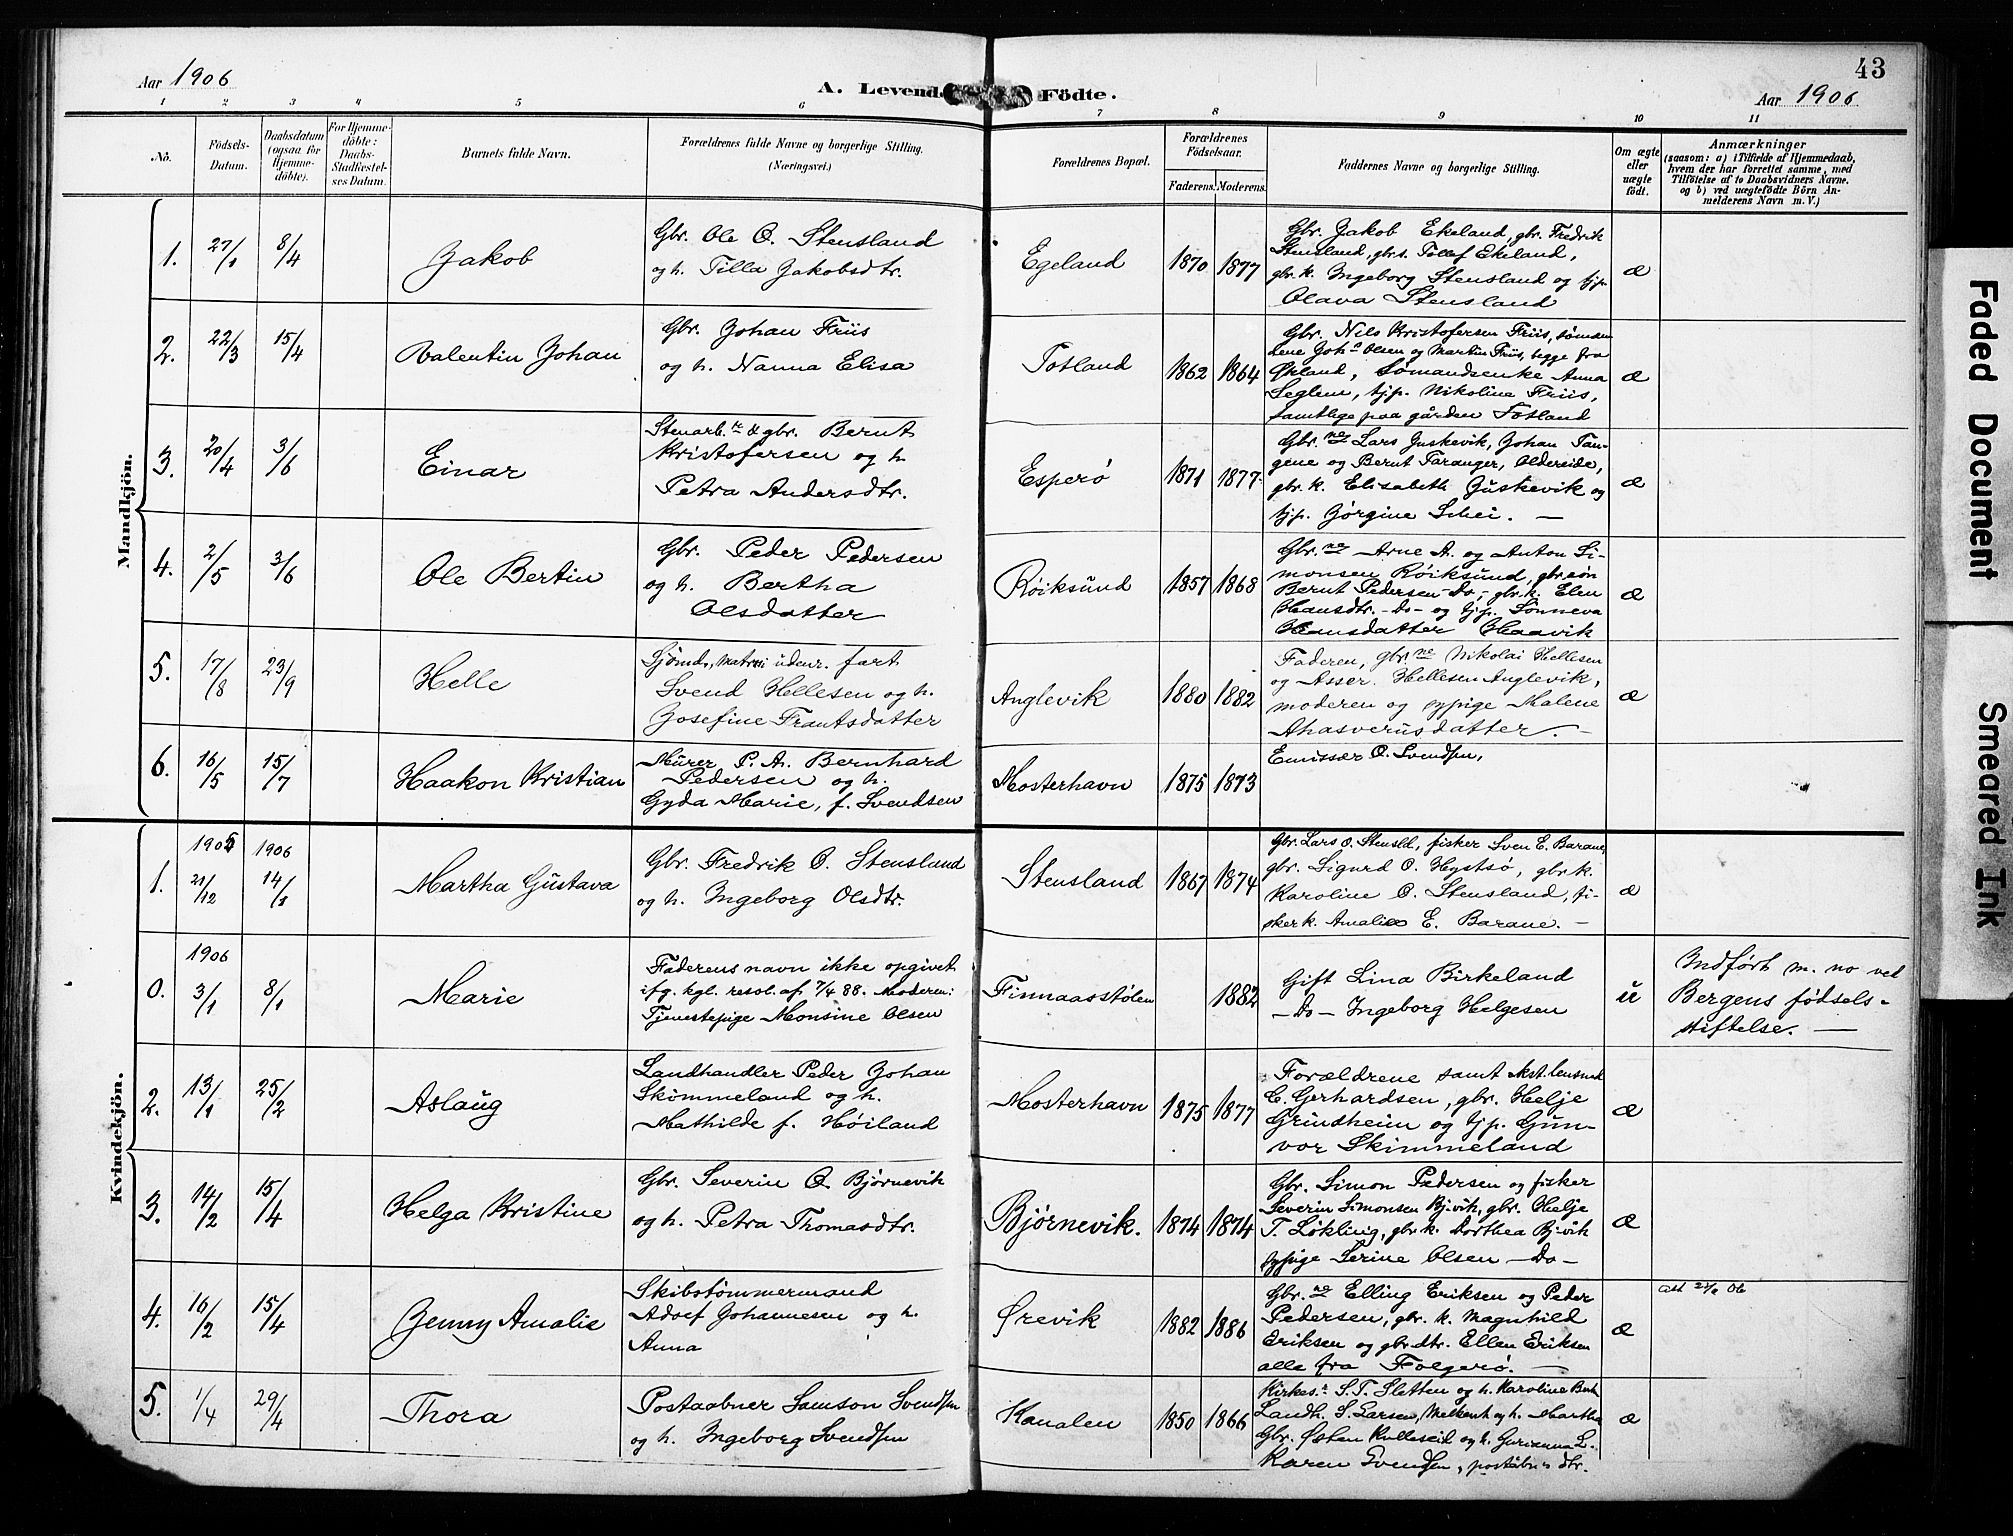 43
Aar 1906
A. Levend Födte.
Aar 1906
1 2 3 4 5 6 7 8 9 10 11
No.
Födsels-
Datum.
Daabsdatum
(ogsaa for
Hjemme-
döbte).
For Hjemme-
döbte:
Daabs-
Stadfæstel-
ses Datum.
Barnets fulde Navn.
Forældrenes fulde Navne og borgerlige Stilling.
(Næringsvei.)
Forældrenes Bopæl.
Forældrenes
Födselsaar.
Faderens. Moderens.
Faddernes Navne og borgerlige Stilling.
Om ægte
eller
uægte
födt.
Anmærkninger
(saasom: a) i Tilfælde af Hjemmedaab,
hvem der har forrettet samme, med
Tilføielse af to Daabsvidners Navne.
og b) ved uægtefödte Börn An-
melderens Navn m. V.)
Mandkjön.
1. 27/1 8/4 Jakob
Gbr. Ole O. Stensland
og h. Tilla Jakobsdtr.
Egeland 1870 1877
Gbr. Jakob Ekeland, gbr. Fredrik
Stensland, gbr.s. Tollef Ekeland,
gbr. k. Ingeborg Stensland og tjp.
Olava Stensland
æ
2. 22/3 15/4 Valentin Johan
Gbr. Johan Friis
og h. Nanna Elisa
Totland 1862 1864
Gbr. Nils Kristofersen Friis, sømæn
dene Joh.s Olsen og Martin Friis, begge fra
Økland, Sømandsenke Anna
Leglem, tjp. Nikoline Friis,
samtlige paa gården Totland
æ
3. 20/4 3/6 Einar
Stenarb.re & gbr. Bernt
Kristofersen og h.
Petra Andersdtr.
Esperø 1871 1877
Gbr.ne Lars Juskevik, Johan Tan-
gene og Bernt Faranger, Oldereide,
gbr. k. Elisabeth Juskevik og
tjp. Jørgine Schei. —
æ
4. 2/5 3/6 Ole Bertin
Gbr. Peder Pedersen
og h. Bertha
Olsdatter
Røiksund 1857 1868
Gbr.ne Arne A. og Anton Si-
monsen Røiksund, gbr.søn
Bernt Pedersen - Do -, gbr. k. Elen
Hansdtr. - Do - og tjp. Sønneva
Hansdatter Haavik
æ
5. 17/8 23/9 Helle
Sjømd., matr. i udenr. fart
Svend Hellesen og h.
Josefine Frantsdatter
Anglevik 1880 1882
Faderen, gbr.ne Nikolai Hellesen
og Asser Hellesen Anglevik,
moderen og ppige Malene
Ahasverusdatter. —
æ
6. 16/5 15/7 Haakon Kristian
Murer P. A. Bernhard
Pedersen og h.
Gyda Marie, f. Svendsen
Mosterhavn 1875 1873
Emissær O. Svendsen,
Kvindekjön.
1. 1905 21/12 1906 14/1 Martha Gustava
Gbr. Fredrik O. Stensland
og h. Ingeborg Olsdtr.
Stensland 1867 1874
Gbr. Lars O. Stensld, fisker Sven E. Barane,
gbr. Sigurd O. Hystsø, gbr. k.
Karoline O. Stensland, fi-
skerk. Amalie E. Barane. —
æ
0. 1906 3/1 8/1 Marie
Faderens navn ikke opgivet
ifg. kgl. resol. af 7/4 88. Moderen:
Tjenestepige Monsine Olsen
Finnaasstølen 1882
Gift Lina Birkeland
— Do — Ingeborg Helgesen
u
Indført m. no ved
Bergens fødsels-
stiftelse. —
2. 13/1 25/2 Aslaug
Landhandler Peder Johan
Skimmeland og h.
Mathilde f. Høiland
Mosterhavn 1875 1877
Forældrene samt Asst. lensmd
E. Gerhardsen, gbr. Helje
Grindheim og tjp. Gun-
vor Skimmeland
æ
3. 14/2 15/4 Helga Kristine
Gbr. Severin O. Bjørnevik
og h. Petra Thomasdtr.
Bjørnevik. 1874 1874
Gbr. Simon Pedersen og fisker
Severin Simonsen Bj.vik, gbr. Helje
T. Løkling, gbr. k. Dorthea Bj-vik
ppige Serine Olsen — Do —
æ
4. 16/2 15/4 Jenny Amalie
Skibstømmermand
Adolf Johannesen og h.
Anna
Ørevik 1882 1886
Gbr.ne Elling Eriksen og Peder
Pedersen, gbr. k. Magnhild
Eriksen og gbr.dtr. Ellen Eriksen
alle fra Folgerø. —
æ
5. 1/4 29/4 Thora
Postaabner Samson Svendsen
og h. Ingeborg Svendsen
Kanalen 1850 1866
Kirkes.r S. T. Sletten og h. Karoline
Landh. S. Larsen, Melkevt og h. Martha
Gbr. Østen Kulleseid og h. Gurianna L.
Karen Svendsen, postabn.s dtr.
æ
Faded Document
Smeared Ink